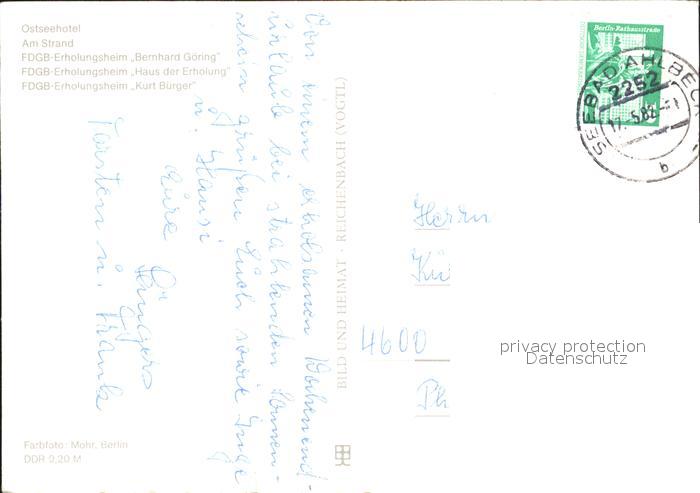 Ostseehotel
Am Strand
FDGB-Erholungsheim „Bernhard Göring"
FDGB-Erholungsheim „Haus der Erholung"
FDGB-Erholungsheim „Kurt Bürger"
Von einem erholsamen Wochenend-
urlaub bei strahlenden Sonnen-
schein grüßen Euch sowie Inge
u. Hansi
Eure
Torsten u. Frank
BILD UND HEIMAT · REICHENBACH (VOGTL)
Berlin-Rathausstraße
SEEBAD AHLBECK
2252
17.-5.82
b
Herrn
Kü
4600
privacy protection
Datenschutz
Farbfoto: Mohr, Berlin
DDR 0,20 M